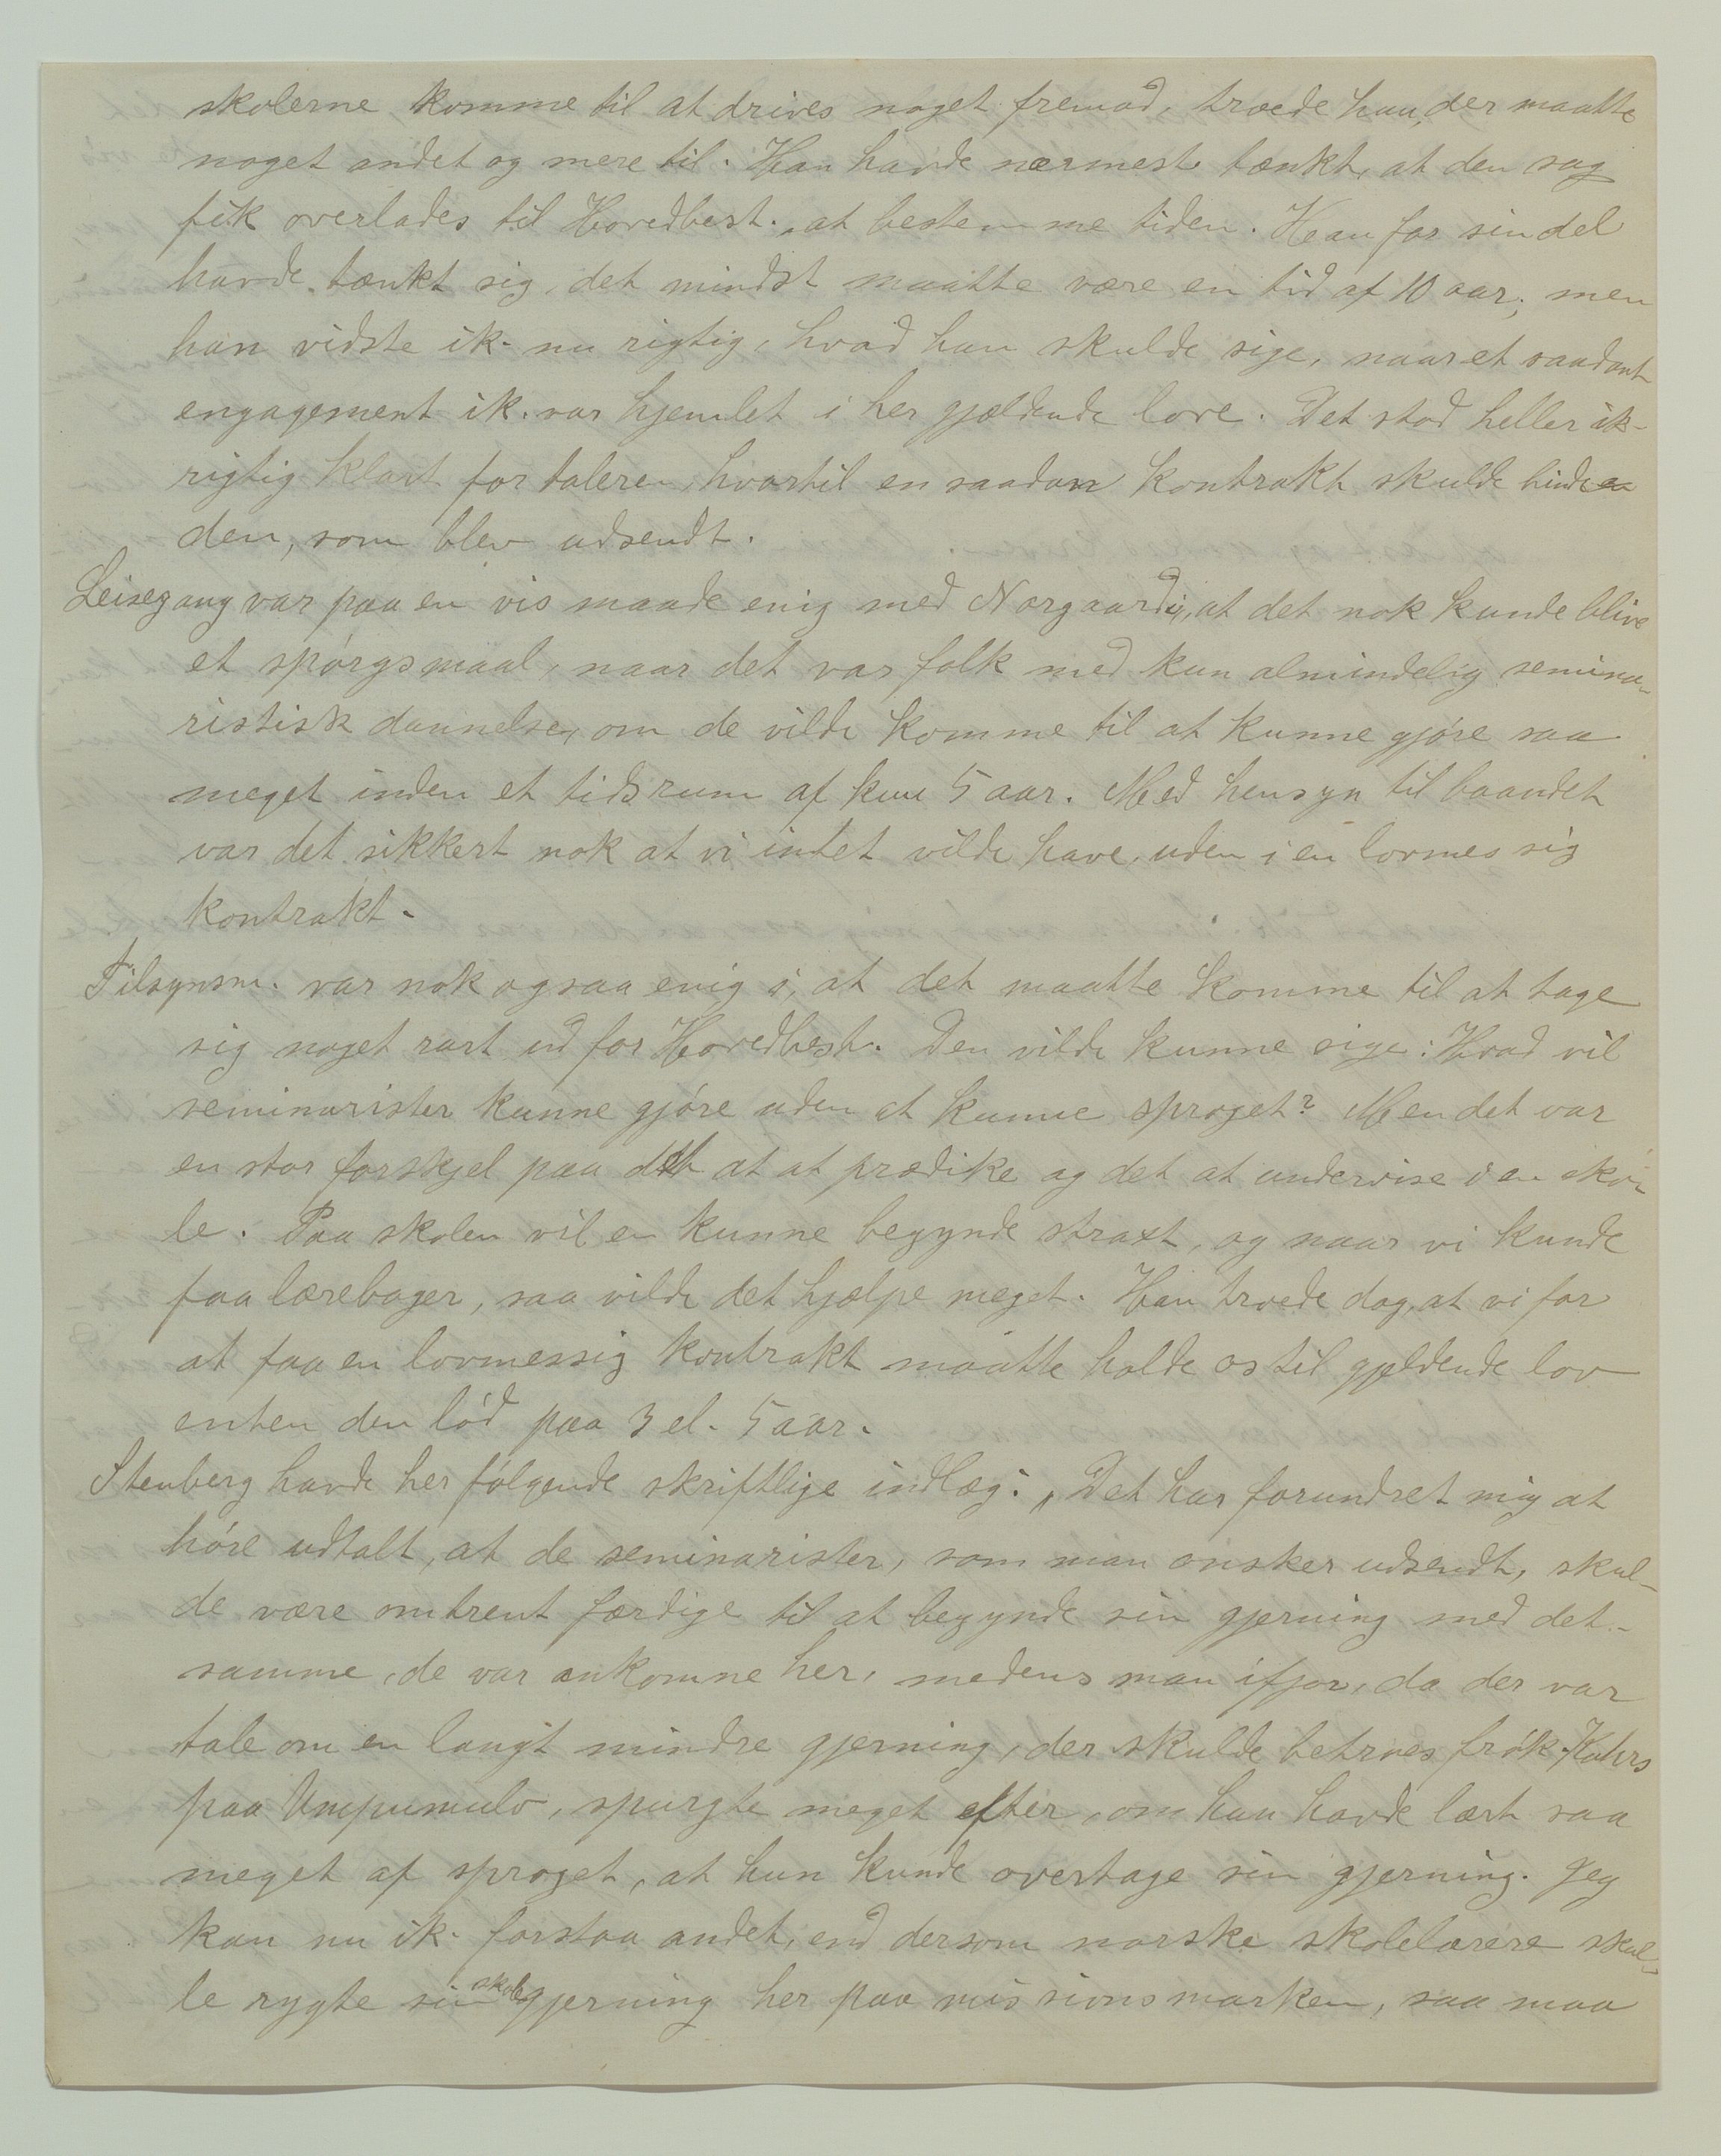 skolerne komme til at drives noget fremad, troede han, der maatte
noget andet og mere til. Han havde nærmest tænkt, at den sag
fik overlades til Hovedbest. at bestemme tiden. Han for sin del
havde tænkt sig, det mindst maatte være en tid af 10 aar; men
han vidste ik. nu rigtig, hvad han skulde sige, naar et saadant
engagement ik. var hjemlet i her gjældende love. Det stod heller ik.
rigtig klart for taleren, hvortil en saadan kontrakt skulde binde
den, som blev udsendt.
Leisegang var paa en vis maade enig med Norgaard i, at det nok kunde blive
et spørgsmaal, naar det var folk med kun almindelig semina-
ristisk dannelse, om de vilde komme til at kunne gjøre saa
meget inden et tidsrum af kun 5 aar. Med hensyn til baandet
var det sikkert nok at vi intet vilde have, uden i en lovmes sig
kontrakt.
Tilsynsm. var nok ogsaa enig i, at det maatte komme til at tage
sig noget rart ud for Hovedbest. Den vilde kunne sige: Hvad vil
seminarister kunne gjøre uden at kunne sproget? Men det var
en stor forskjel paa det at at prædike og det at undervise i en sko-
le. Paa skolen vil en kunne begynde straxt, og naar vi kunde
faa lærebøger, saa vilde det hjælpe meget. Han troede dog, at vi for
at faa en lovmessig kontrakt maatte holde os til gjeldende lov
enten den lød paa 3 el. 5 aar.
Stenberg havde her følgende skriftlige indlæg: „Det har forundret mig at
høre udtalt, at de seminarister, som man ønsker udsendt, skul-
de være omtrent færdige til at begynde sin gjerning med det-
samme, de var ankomne her, medens man ifjor, da der var
tale om en langt mindre gjerning, der skulde betroes frøk. Kahrs
paa Umpumulo, spurgte meget efter, om hun havde lært saa
meget af sproget, at hun kunde overtage sin gjerning. Jeg
kan nu ik. forstaa andet, end dersom norske skolelærere skul-
le rygte sin skolegjerning her paa missionsmarken, saa maa